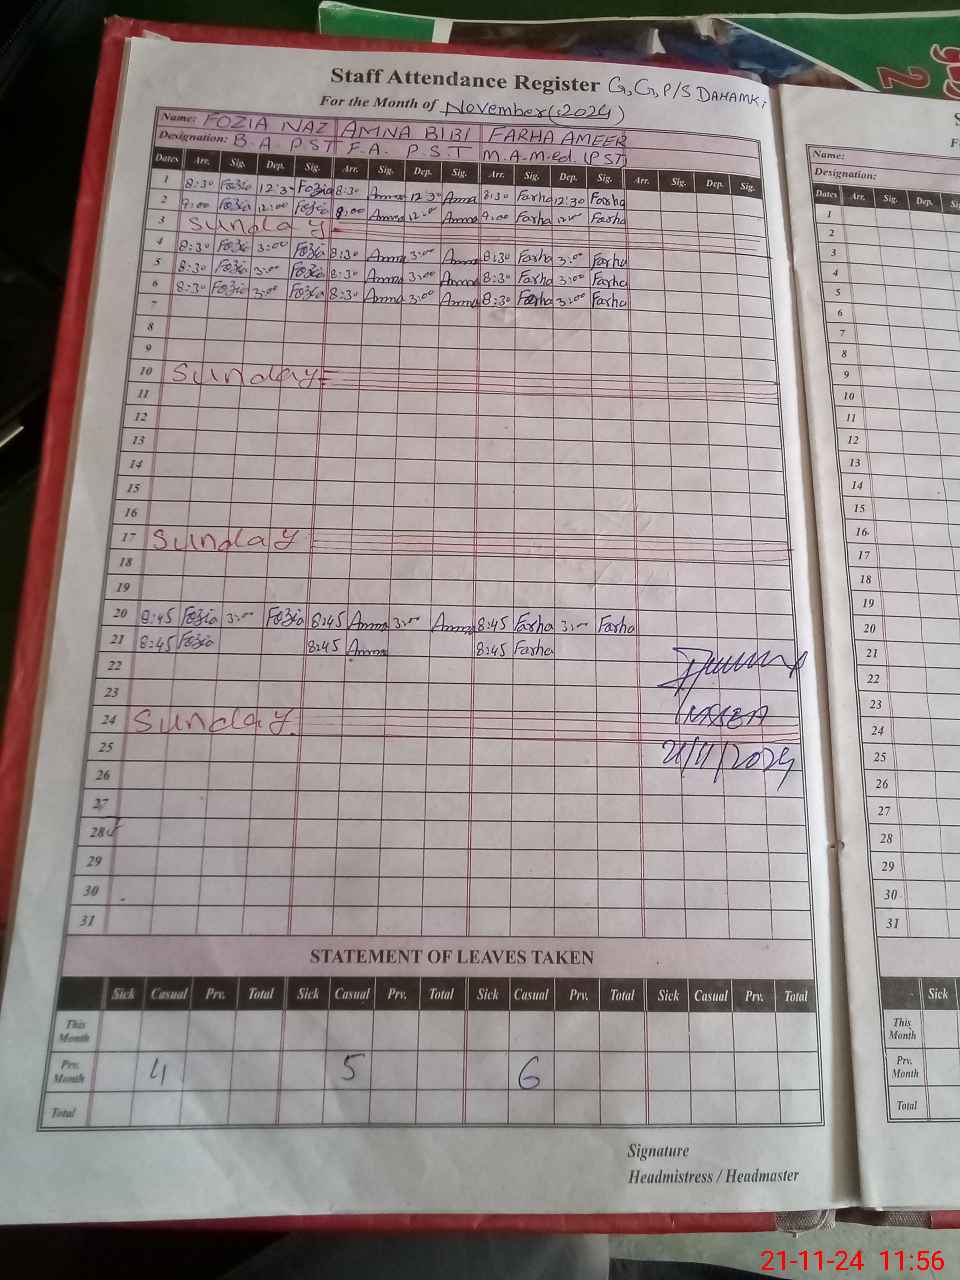 Staff Attendance Register G,G,P/S DAHAMK
For the Month of November (2024)
Name: FOZIA NAZ AMNA BIBI FARHA AMEER
Designation: B.A. P ST F.A. P.S.T M.A.M.ed. (PST)
Dates Arr. Sig. Dep. Sig. Arr. Sig. Dep. Sig. Arr. Sig. Dep. Sig. Arr. Sig. Dep. Sig.
1 8:30 Fozia 12:30 Fozia 8:30 Amna 12:30 Amna 8:30 Farha 12:30 Farha
2 9:00 Fozia 12:00 Fozia 9:00 Amna 12:00 Amna 9:00 Farha 12:00 Farha
3 Sunday
4 8:30 Fozia 3:00 Fozia 8:30 Amna 3:00 Amna 8:30 Farha 3:00 Farha
5 8:30 Fozia 3:00 Fozia 8:30 Amna 3:00 Amna 8:30 Farha 3:00 Farha
6 8:30 Fozia 3:00 Fozia 8:30 Amna 3:00 Amna 8:30 Farha 3:00 Farha
7
8
9
10 Sunday
11
12
13
14
15
16
17 Sunday
18
19
20 8:45 Fozia 3:00 Fozia 8:45 Amna 3:00 Amna 8:45 Farha 3:00 Farha
21 8:45 Fozia 8:45 Amna 8:45 Farha
22
23
24 Sunday
25 21/11/2024
26
27
28
29
30
31
STATEMENT OF LEAVES TAKEN
Sick Casual Prv. Total Sick Casual Prv. Total Sick Casual Prv. Total Sick Casual Prv. Total
This Month
Prv. Month 4 5 6
Total
Signature
Headmistress / Headmaster
Name:
Designation:
Dates Arr. Sig. Dep.
1
2
3
4
5
6
7
8
9
10
11
12
13
14
15
16
17
18
19
20
21
22
23
24
25
26
27
28
29
30
31
Sick
This Month
Prv. Month
Total
21-11-24 11:56